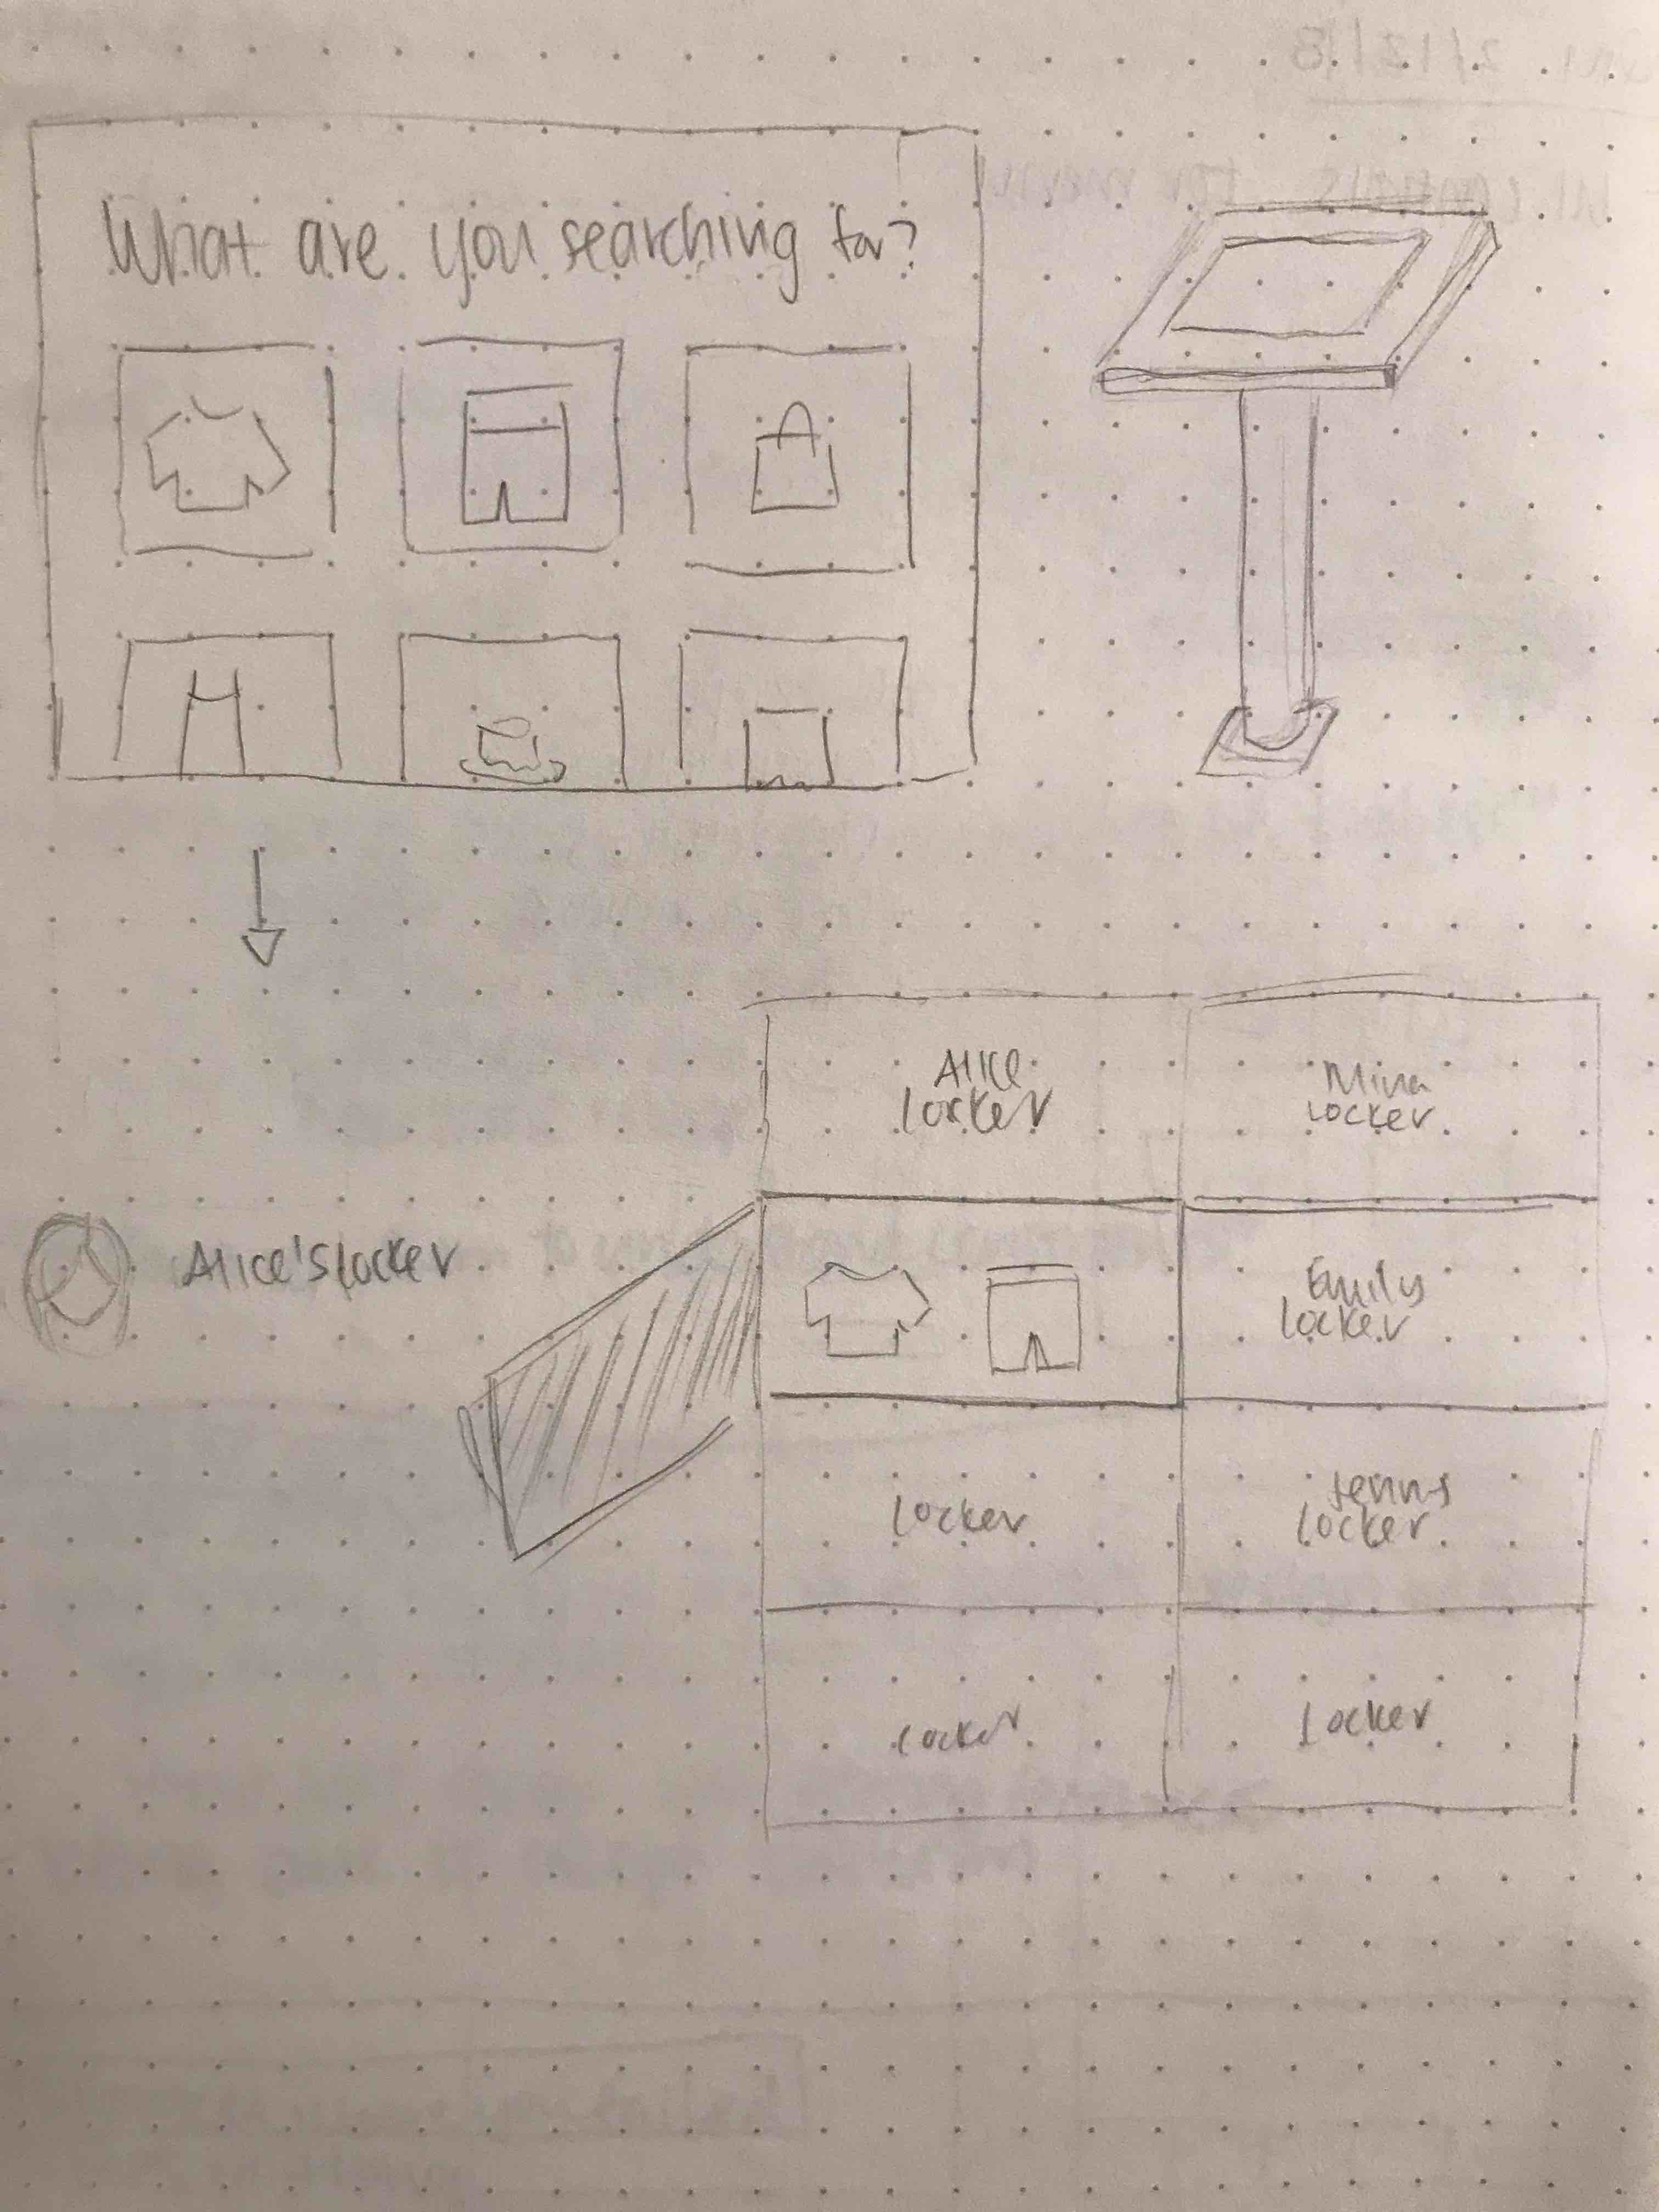 What are you searching for?
Alice
locker
Mina
Locker
Alice's locker
Emily
Locker
Locker
Jenny
Locker
Locker
Locker